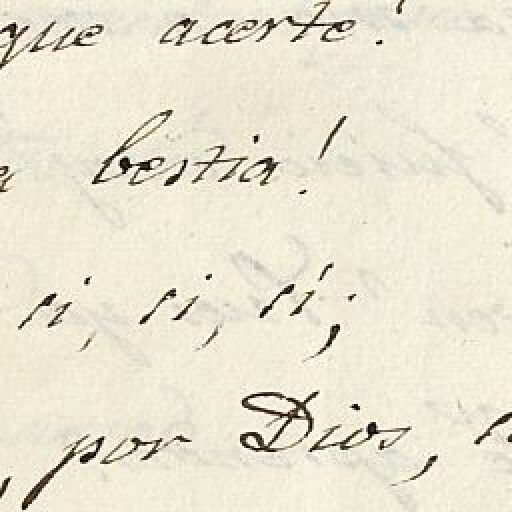 que acerte!
a bestia!
si, si, sí;
, por Dios, s